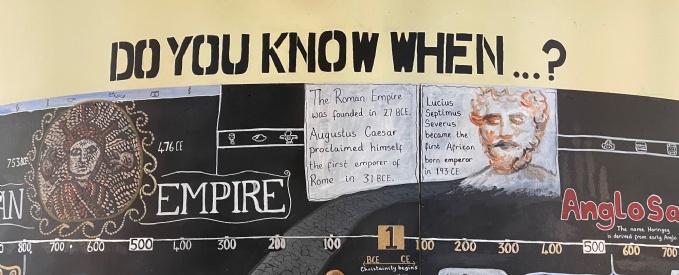 DO YOU KNOW WHEN...?
The Roman Empire
was founded in 27 BCE.
Augustus Caesar
proclaimed himself
the first emporer of
Rome in 31 BCE.
Lucius
Septimus
Severus
became the
first African
born emperor
in 193 CE.
753 BCE
476 CE
AN EMPIRE
Anglo Sa
The name Haringey
is derived from early Anglo
800, 700 600 500 400 300 200 100 1 100 200 300 400 500 600 700
BCE CE
Christianity begins